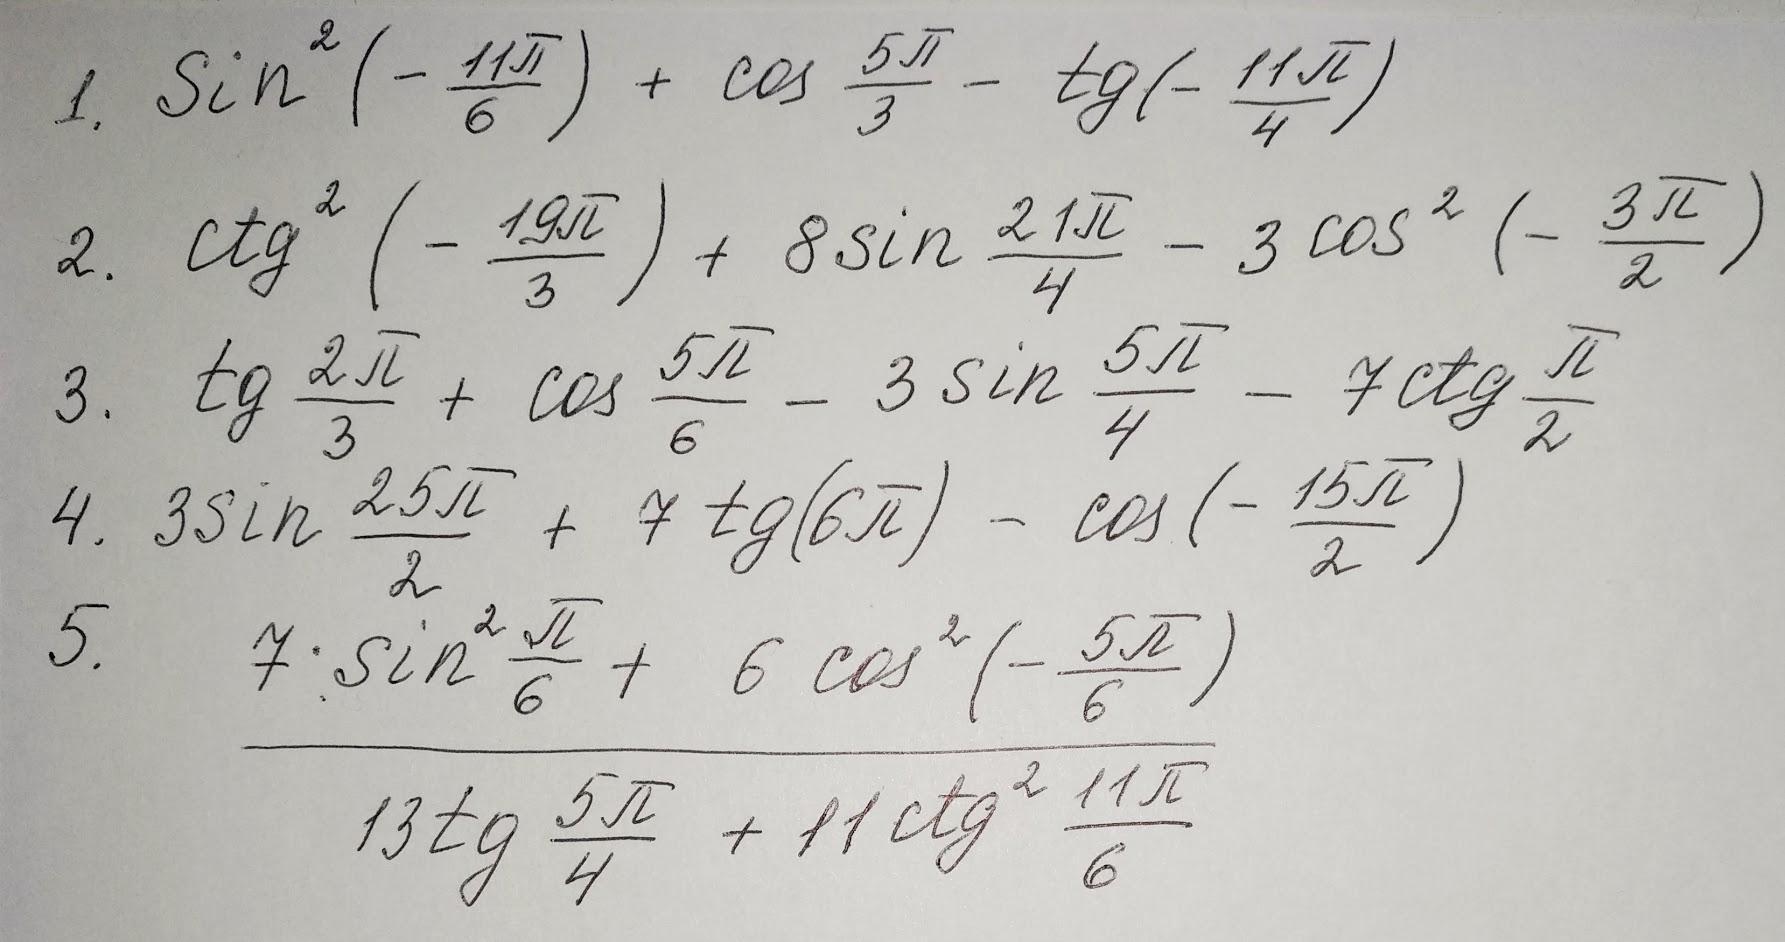 1. sin²(-11π/6) + cos 5π/3 - tg(-11π/4)
2. ctg²(-19π/3) + 8 sin 21π/4 - 3 cos²(-3π/2)
3. tg 2π/3 + cos 5π/6 - 3 sin 5π/4 - 7 ctg π/2
4. 3 sin 25π/2 + 7 tg(6π) - cos(-15π/2)
5. 7 · sin² π/6 + 6 cos²(-5π/6)
13 tg 5π/4 + 11 ctg² 11π/6